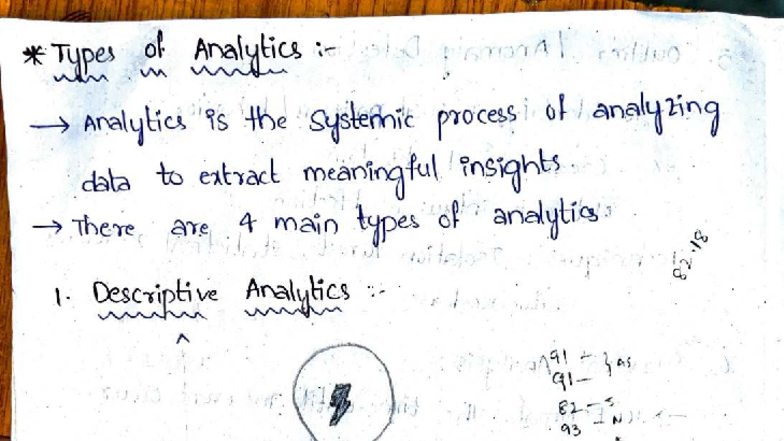 * Types of Analytics :-
→ Analytics is the systemic process of analyzing
data to extract meaningful insights.
→ There are 4 main types of analytics.
82.18
1. Descriptive Analytics :-
91
91
82
93